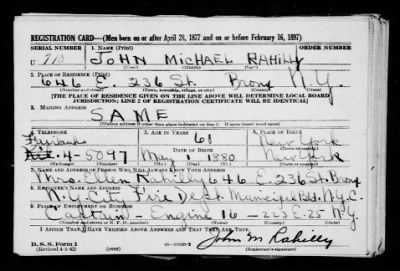 REGISTRATION CARD—(Men born on or after April 28, 1877 and on or before February 16, 1897)
SERIAL NUMBER 1. NAME (Print)
U JOHN MICHAEL RAHILLY
(First) (Middle) (Last)
2. PLACE OF RESIDENCE (Print)
646 E. 236 St. Bronx N.Y.
(Number and street) (Town, township, village, or city) (County) (State)
[THE PLACE OF RESIDENCE GIVEN ON THE LINE ABOVE WILL DETERMINE LOCAL BOARD
JURISDICTION; LINE 2 OF REGISTRATION CERTIFICATE WILL BE IDENTICAL]
3. MAILING ADDRESS
SAME
[Mailing address if other than place indicated on line 2. If same insert word same]
4. TELEPHONE 5. AGE IN YEARS 6. PLACE OF BIRTH
Fairbanks 61 New York
4-5797 DATE OF BIRTH
May 1 1880 New York
7. NAME AND ADDRESS OF PERSON WHO WILL ALWAYS KNOW YOUR ADDRESS
Mrs. Ellen Rahilly 646 E. 236 St. Bronx
8. EMPLOYER'S NAME AND ADDRESS
N.Y. City Fire Dept. Municipal Bld. N.Y.C.
9. PLACE OF EMPLOYMENT OR BUSINESS
Captain - Engine 16 - 223 E. 25 N.Y.
I AFFIRM THAT I HAVE VERIFIED ABOVE ANSWERS AND THAT THEY ARE TRUE.
D. S. S. Form 1
(Revised 4-1-42) (over)
John M Rahilly
(Registrant's signature)